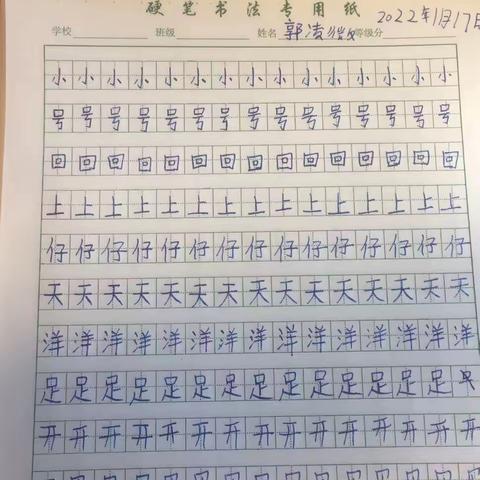 硬笔书法专用纸
2022年1月17日
学校 班级 姓名 郭凌 等级分
小小小小小小小小小小小小小小小
号号号号号号号号号号号号号号号
回回回回回回回回回回回回回回回
上上上上上上上上上上上上上上上
仔仔仔仔仔仔仔仔仔仔仔仔仔仔仔
天天天天天天天天天天天天天天天
洋洋洋洋洋洋洋洋洋洋洋洋洋洋洋
足足足足足足足足足足足足足足足
开开开开开开开开开开开开开开开